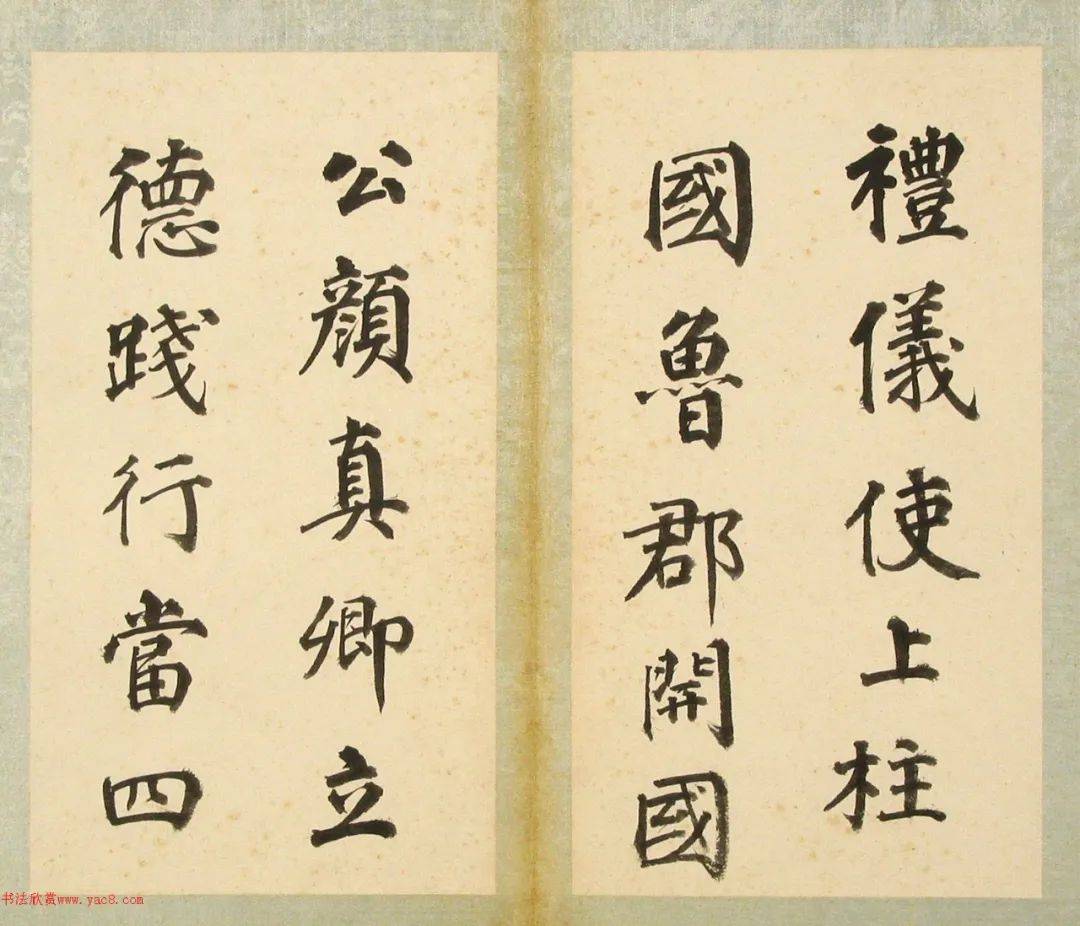 禮儀使上柱
國魯郡開國
公顏真卿立
德踐行當四
书法欣赏www.yac8.com